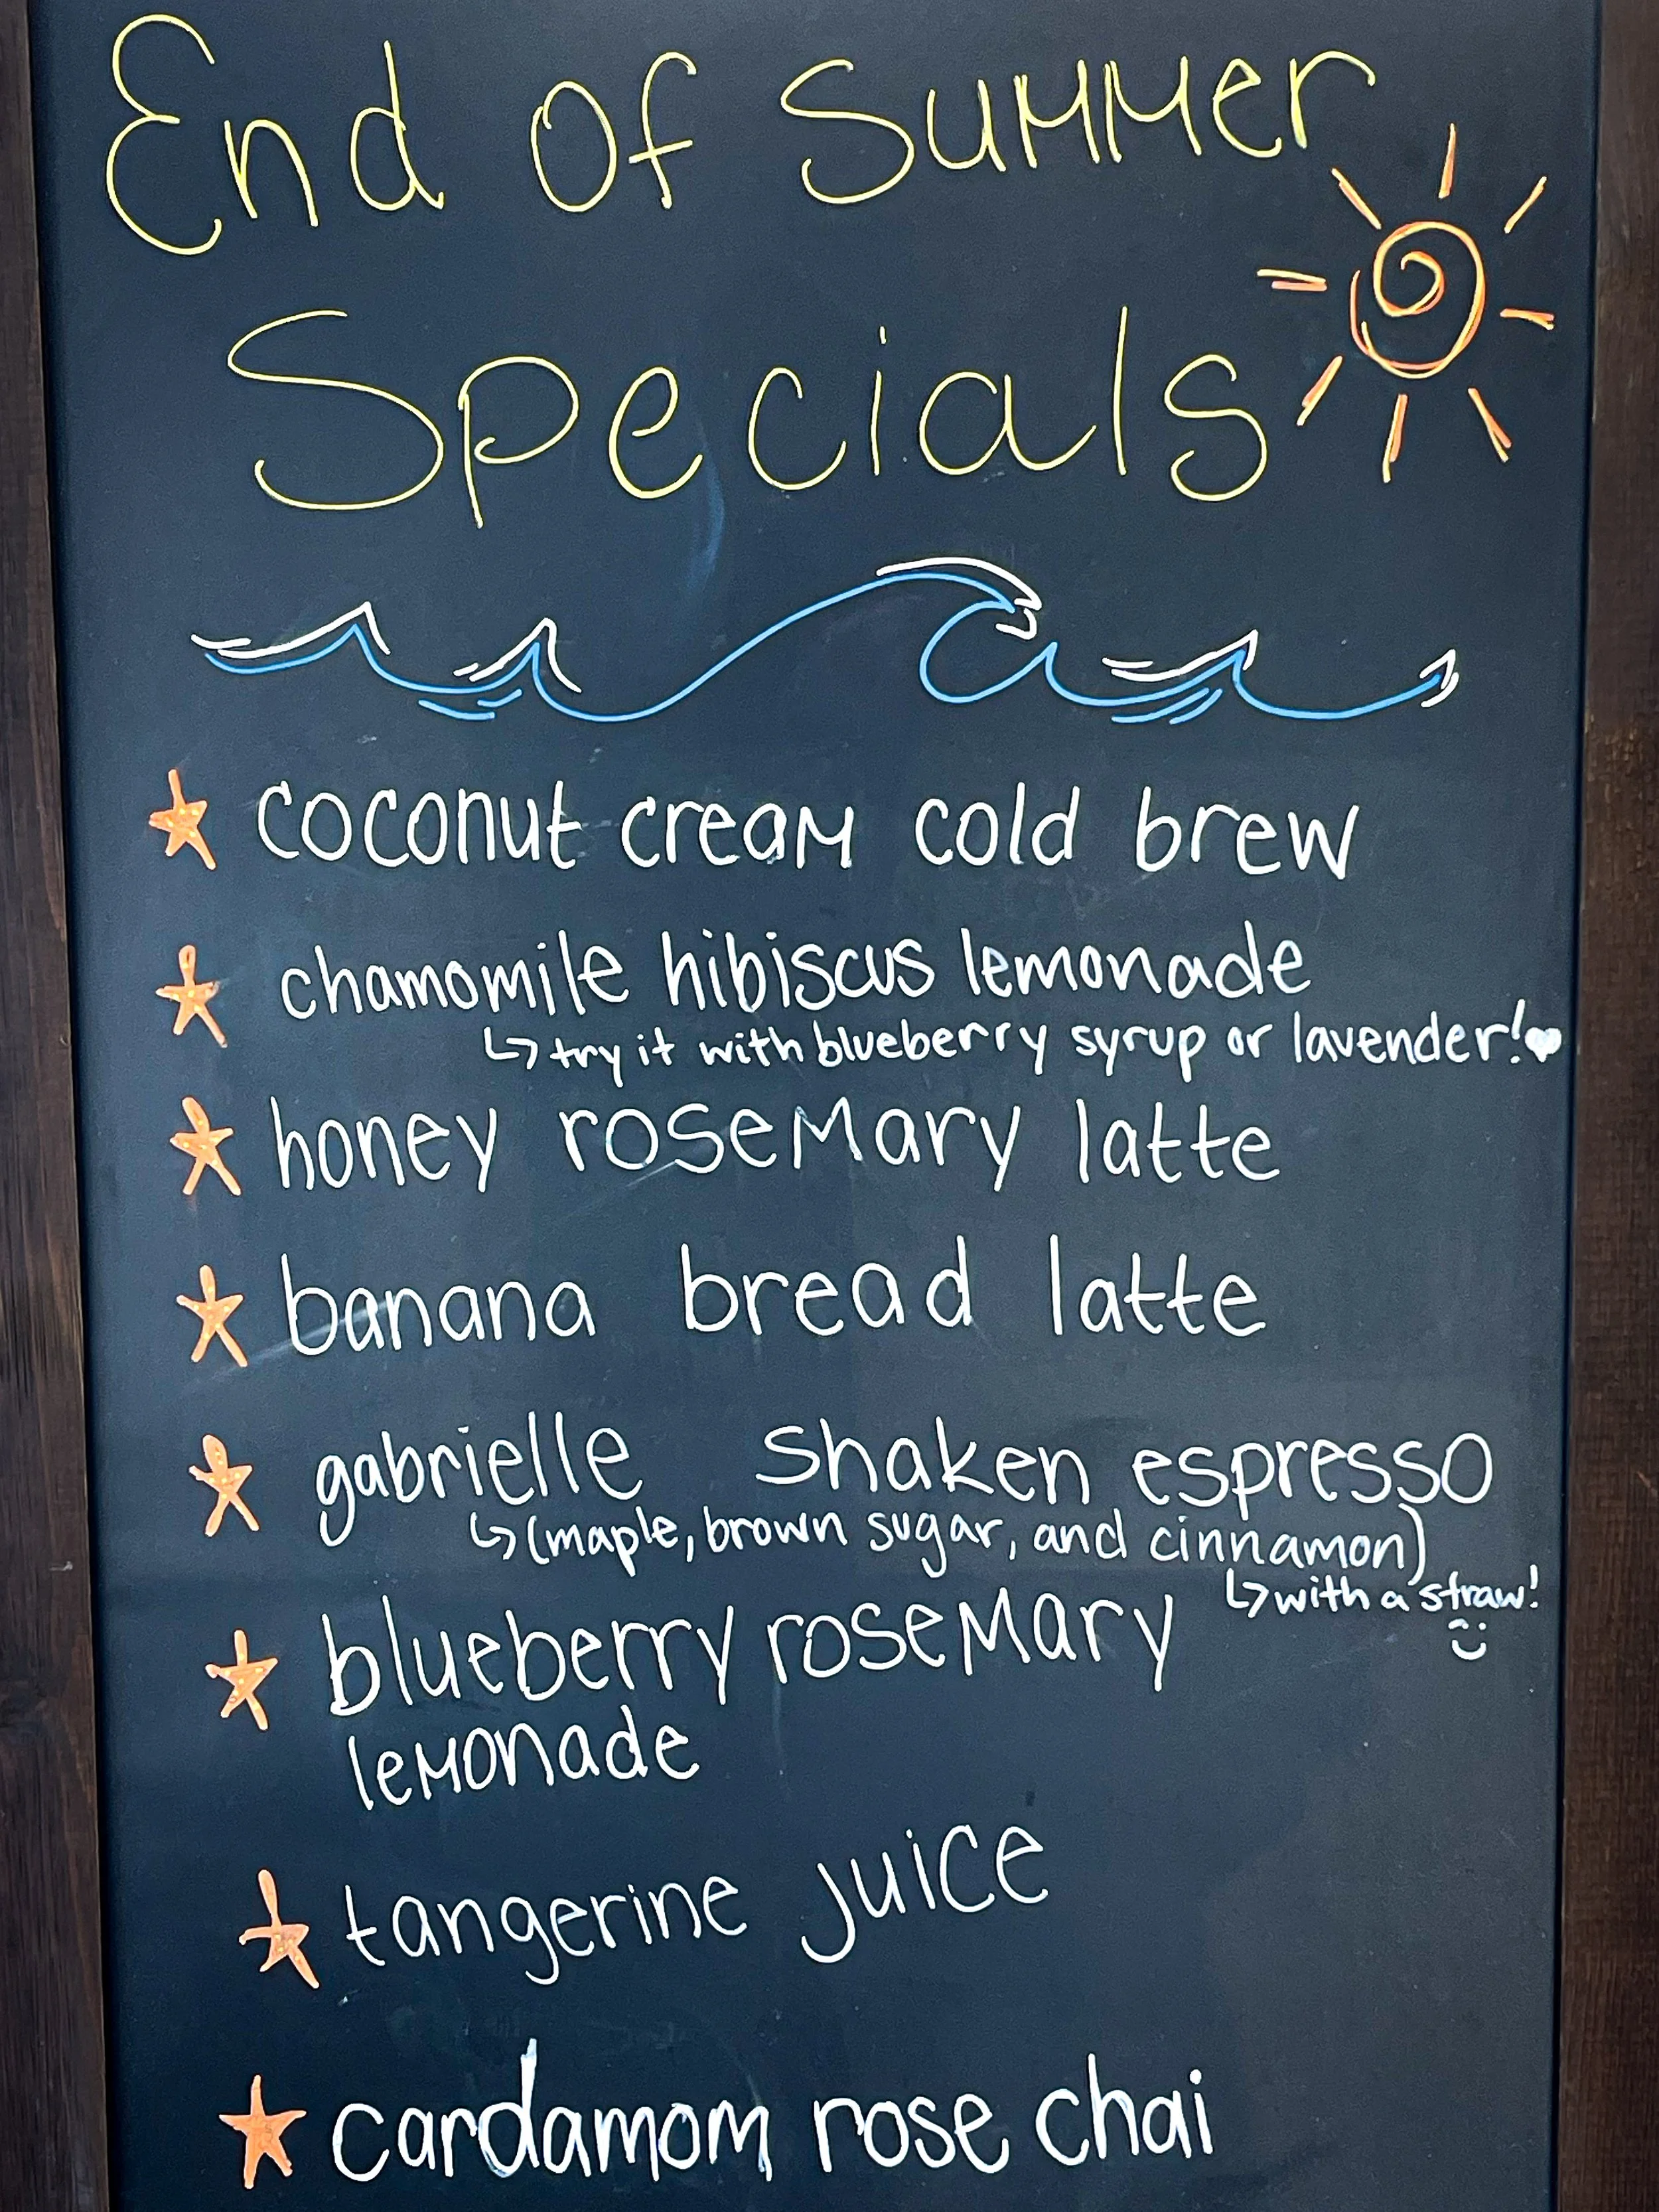 End of Summer
Specials
coconut cream cold brew
chamomile hibiscus lemonade
↳ try it with blueberry syrup or lavender!♥
honey rosemary latte
banana bread latte
gabrielle shaken espresso
↳ (maple, brown sugar, and cinnamon)
↳ with a straw!
blueberry rosemary
lemonade
tangerine juice
cardamom rose chai